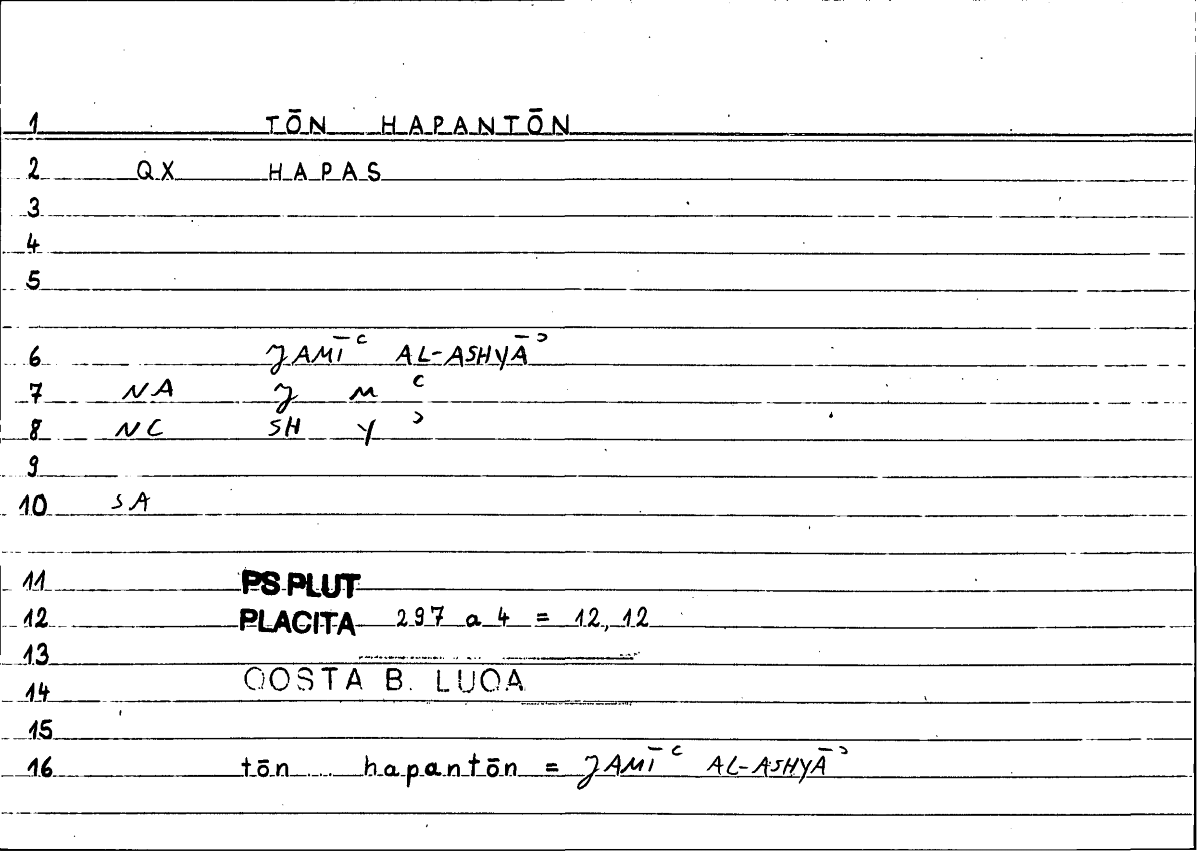 1 TŌN HAPANTŌN
2 QX HAPAS
3
4
5
6 JAMĪʿ AL-ASHYĀʾ
7 NA J M ʿ
8 NC SH Y ʾ
9
10 SA
11 PS PLUT
12 PLACITA 297 a 4 = 12, 12
13
14 QOSTA B. LUQA
15
16 tōn hapantōn = JAMĪʿ AL-ASHYĀʾ